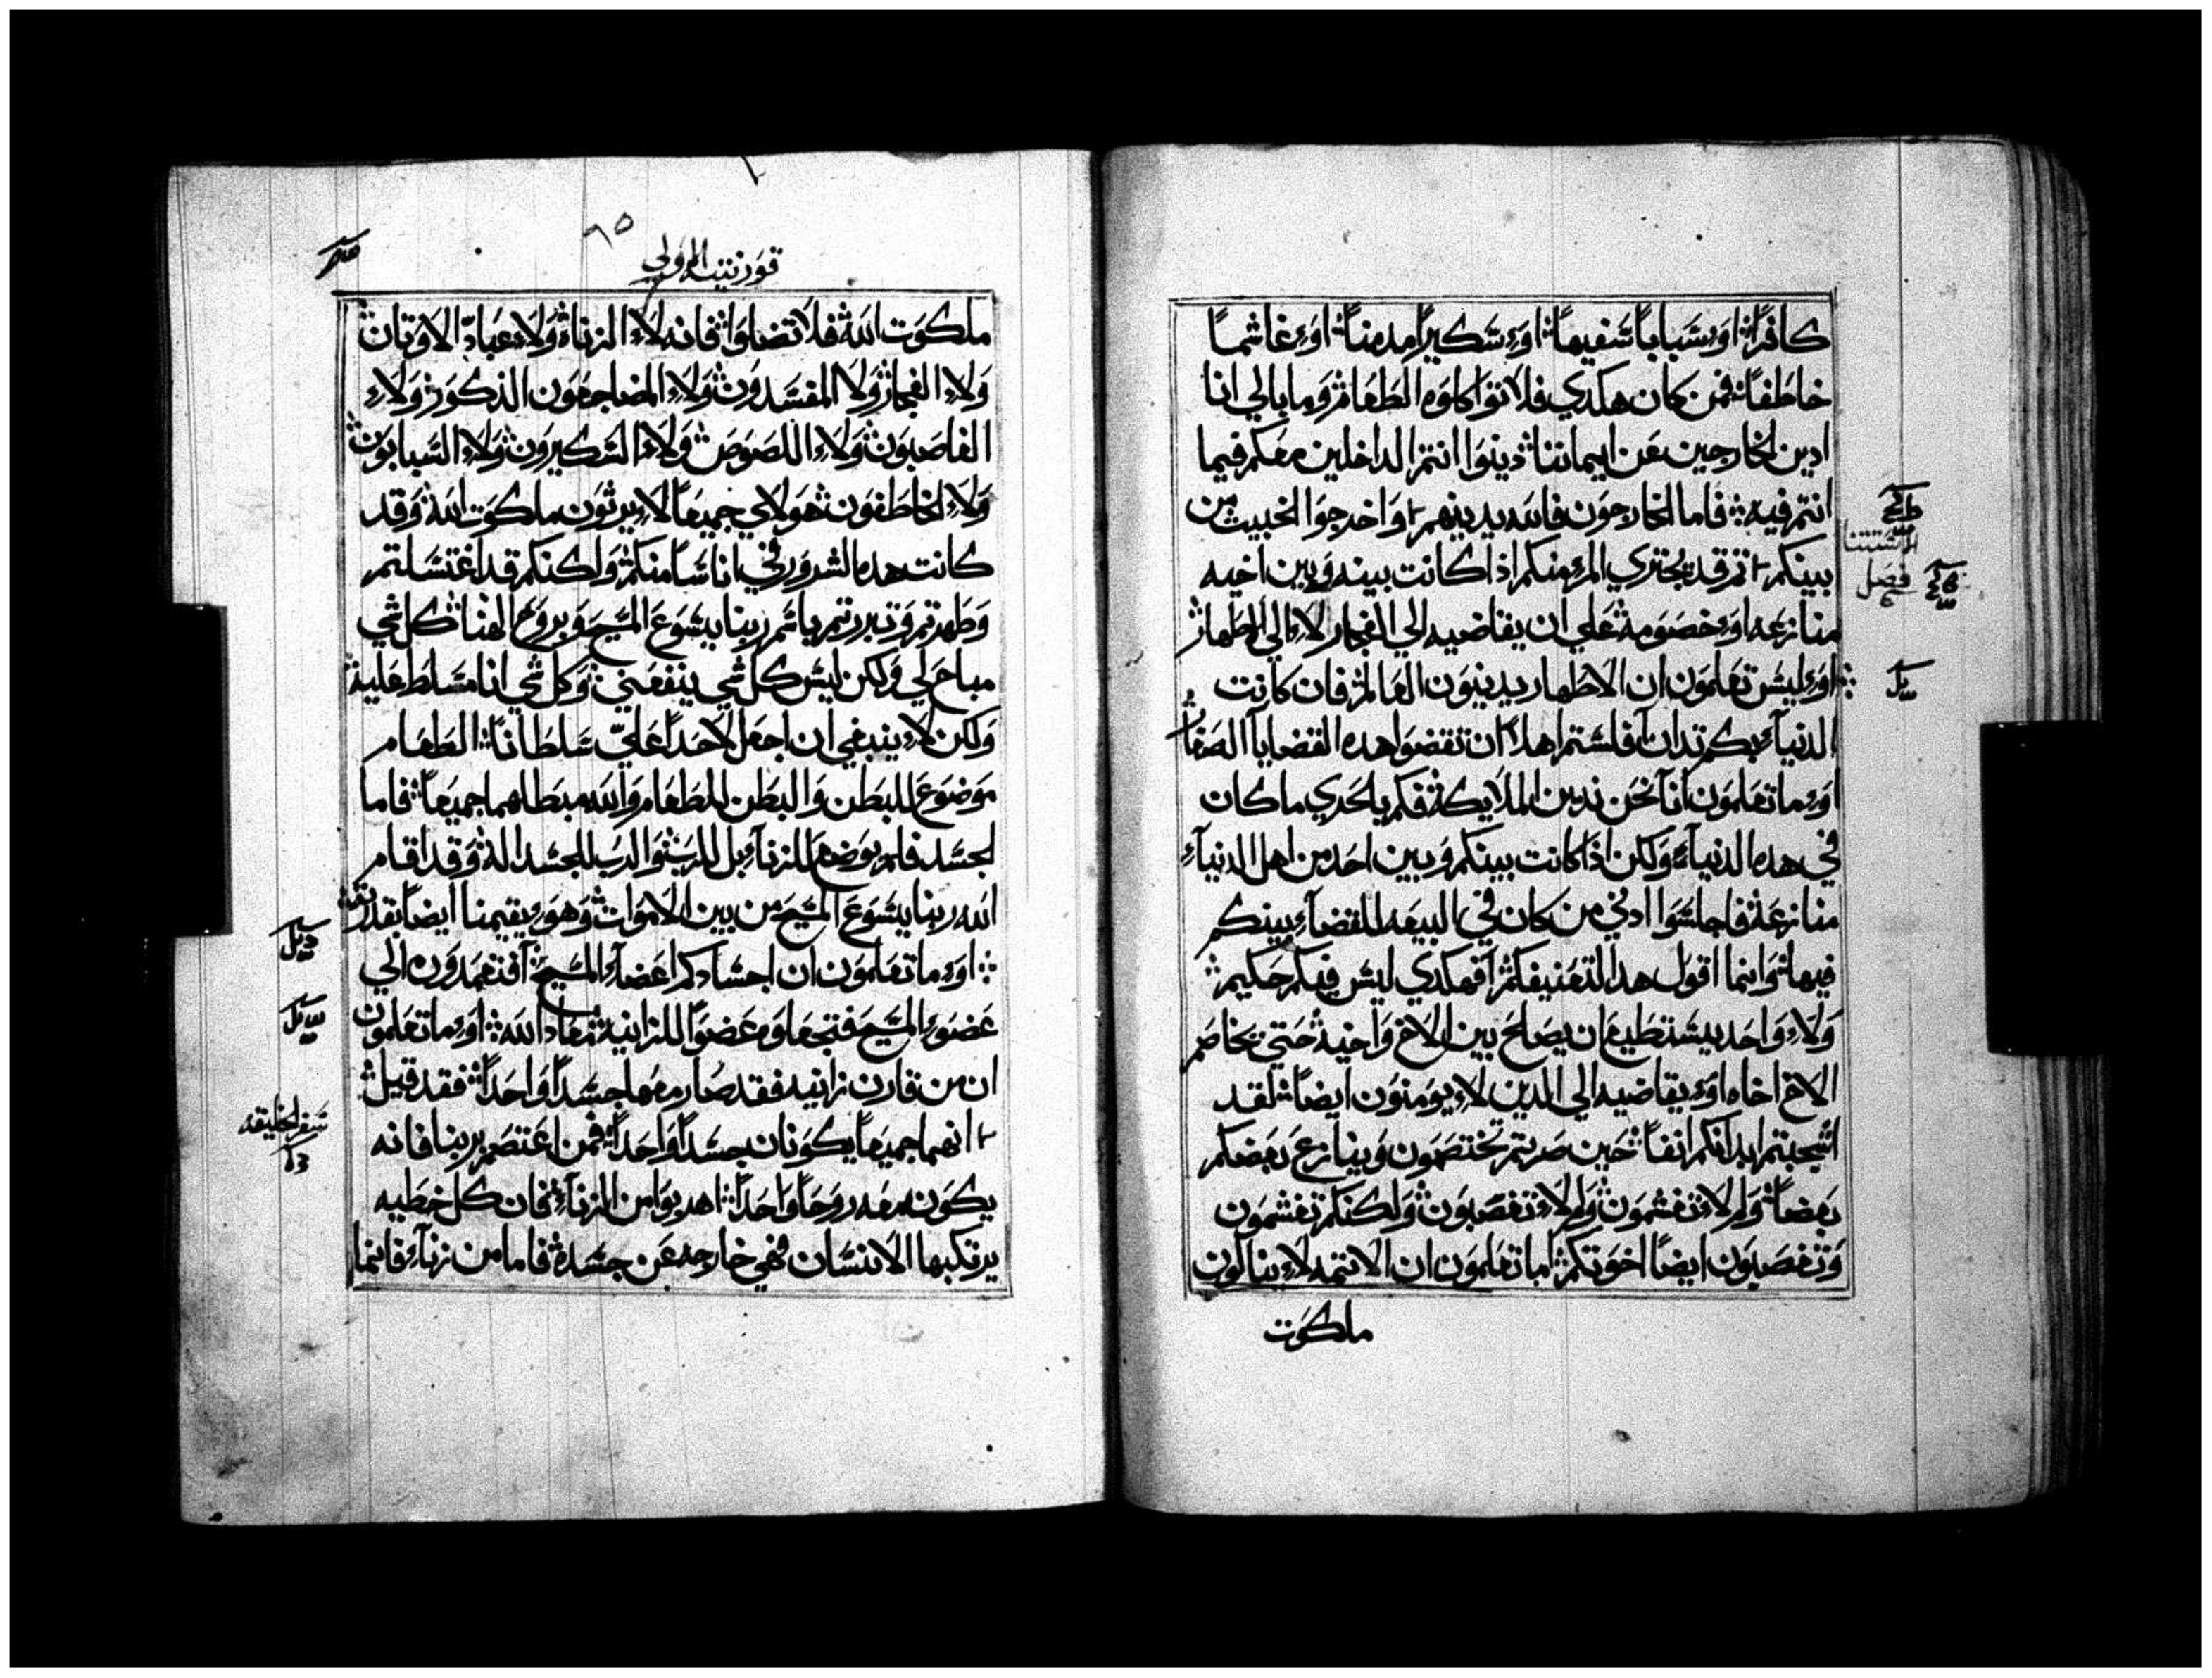 كافرًا او سبابًا سفيهًا او سكيرًا مدمنًا او غاشمًا
خاطفًا فمن كان هكدي فلا تواكلوه الطعام وما بالي انا
ادين الخارجين عن ايماننا دينوا انتم الداخلين معكم فيما
انتم فيه فاما الخارجون فالله يدينهم واخرجوا الخبيث من
بينكم تم قد يجتري المرء منكم اذا كانت بينه وبين اخيه
فصل
منازعه او خصومه علي ان يقاضيه الي الفجار لا الي الاطهار
او ليس تعلمون ان الاطهار يدينون العالم فان كانت
الدنيا بكم تدان فلستم اهلا ان تقضوا هده القضايا الصغار
او ما تعلمون انا نحن ندين الملايكة فكم بالحدي ما كان
في هده الدنيا ولكن اذا كانت بينكم وبين احد من اهل الدنيا
منازعة فاجلسوا ادني من كان في البيعه للقضاء بينكم
فيها وانما اقول هدا لتعنيفكم افهكدي ليس فيكم حكيم
ولا واحد يستطيع ان يصلح بين الاخ واخيه حتي يخاصم
الاخ اخاه او يقاضيه الي الدين لا يومنون ايضا لقد
اشجبتم ابدانكم انفا حين صرتم تختصمون وينازع بعضكم
بعضا ولم لا تغشمون ولم لا تغصبون ولكنكم تغشمون
وتغصبون ايضا اخوتكم اما تعلمون ان الاتمه لا ينالون
ملكوت
٦٥
قورنتيه الاولي
ملكوت الله فلا تضلوا فانه لا الزناة ولا عباد الاوتان
ولا الفجار ولا المفسدون ولا المضاجعون الذكور ولا
الغاصبون ولا اللصوص ولا السكيرون ولا السبابون
ولا الخاطفون هولاي جميعا لا يرثون ملكوت الله وقد
كانت هده الشرور في اناسا منكم ولكنكم قد اغتسلتم
وطهرتم وتبررتم باسم ربنا يسوع المسيح وبروح الهنا كل شي
مباح لي ولكن ليس كل شي ينفعني وكل شي انا مسلط عليه
ولكن لا ينبغي ان اجعل لاحدا علي سلطانا الطعام
موضوع للبطن والبطن للطعام والله مبطلهما جميعا فاما
الجسد فلم يوضع للزنا بل للرب والرب للجسد الله وقد اقام
الله ربنا يسوع المسيح من بين الاموات وهو يقيمنا ايضا بقدرته
او ما تعلمون ان اجسادكم اعضاء المسيح افتعمدون الي
عضو المسيح فتجعلوه عضوا للزانيه معاد الله او ما تعلمون
ان من قارن زانيه فقد صار معها جسدا واحدا فقد قيل
انهما جميعا يكونان جسدا واحدا فمن اعتصم بربنا فانه
سفر الخليقه
يكون معه روحا واحدا اهربوا من الزنا فان كل خطيه
يرتكبها الانسان فهي خارجه عن جسده فاما من زنا فانما